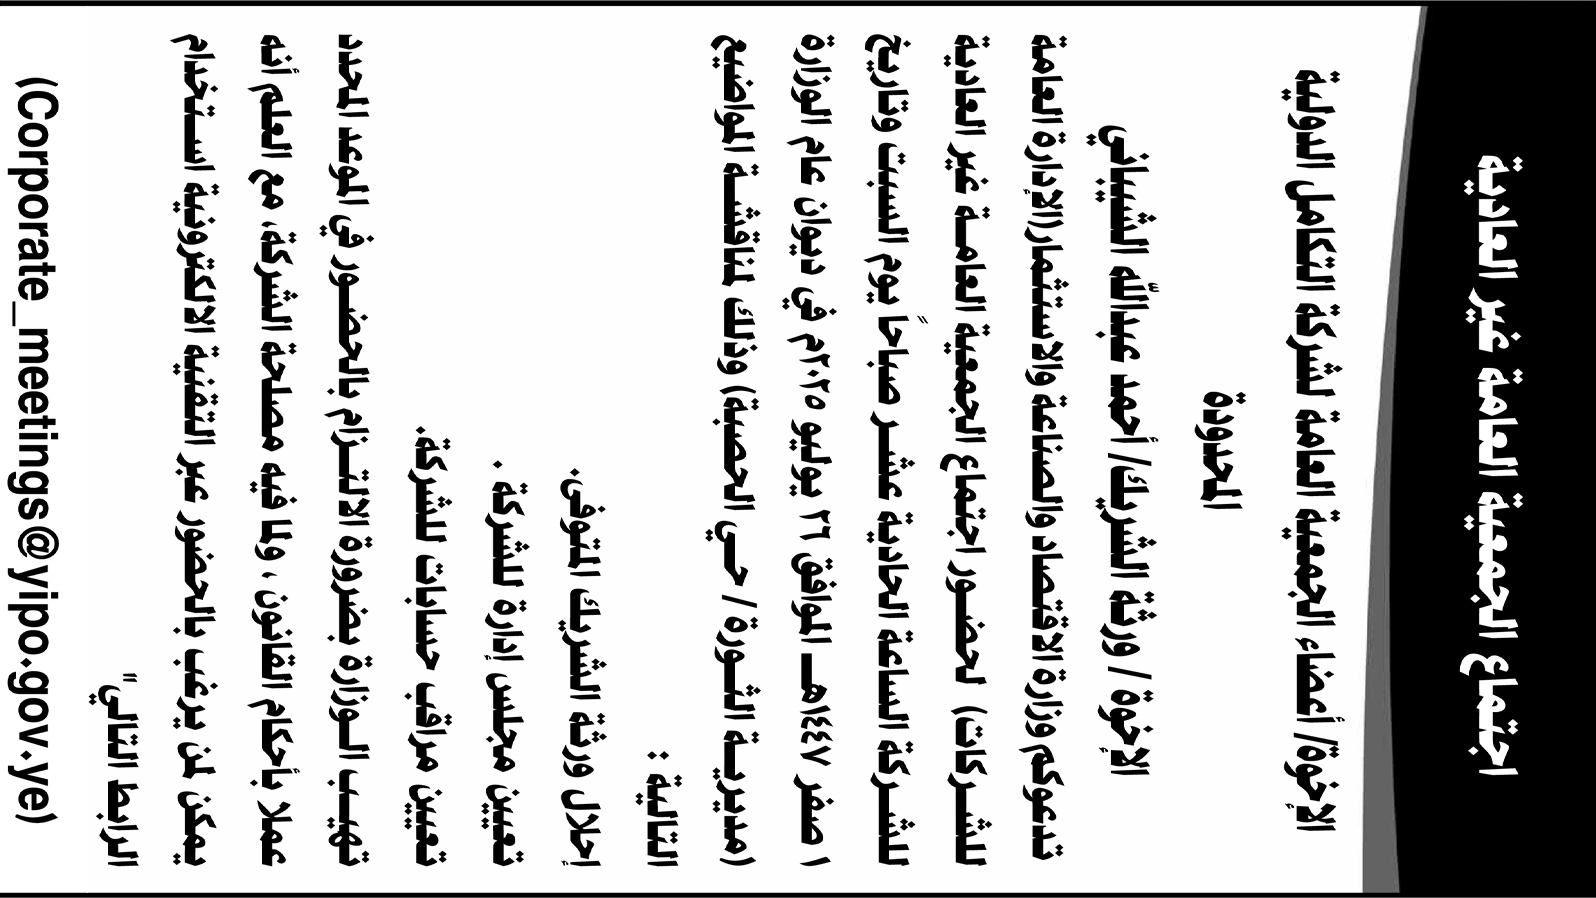 اجتماع الجمعية العامة غير العادية
الإخوة/ أعضاء الجمعية العامة لشركة التكامل الدولية
المحدودة
الإخوة / ورثة الشريك/ أحمد عبدالله الشيباني
تدعوكم وزارة الاقتصاد والصناعة والاستثمار(الإدارة العامة
للشركات) لحضور اجتماع الجمعية العامة غير العادية
للشركة الساعة الحادية عشر صباحاً يوم السبت وتاريخ
١ صفر ١٤٤٧هـ الموافق ٢٦ يوليو ٢٠٢٥م في ديوان عام الوزارة
(مديرية الثورة / حي الحصبة) وذلك لمناقشة المواضيع
التالية :
إحلال ورثة الشريك المتوفى.
تعيين مجلس إدارة للشركة .
تعيين مراقب حسابات للشركة.
تهيب الوزارة بضرورة الالتزام بالحضور في الموعد المحدد
عملا بأحكام القانون ، ولما فيه مصلحة الشركة، مع العلم أنه
يمكن لمن يرغب بالحضور عبر التقنية الالكترونية استخدام
الرابط التالي"
(Corporate_meetings@yipo.gov.ye)